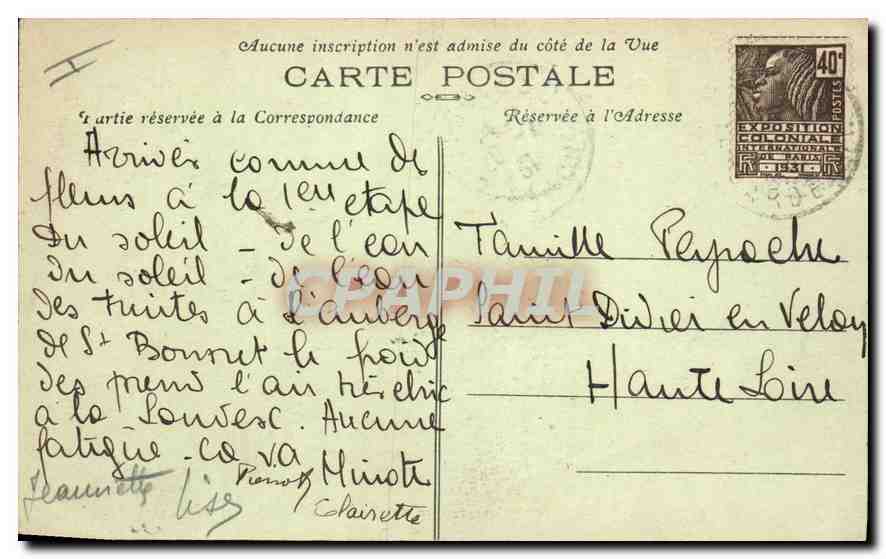 Aucune inscription n'est admise du côté de la Vue
CARTE POSTALE
Partie réservée à la Correspondance
Réservée à l'Adresse
40c
POSTES
EXPOSITION
COLONIALE
INTERNATIONALE
DE PARIS
RF 1931 RF
I
Arrivés comme de
fleurs à la 1ere etape
Du soleil - de l'eau
du soleil - de l'eau
des truites à l'auberge
de St Bonnet le froid
des prend l'air très chic
à la Louvesc. Aucune
fatigue - ca va
Minotte
Pierrot
Jeannette Lise
Clairette
Famille Peyroche
Saint Didier en Velay
Haute Loire
CPAPHIL